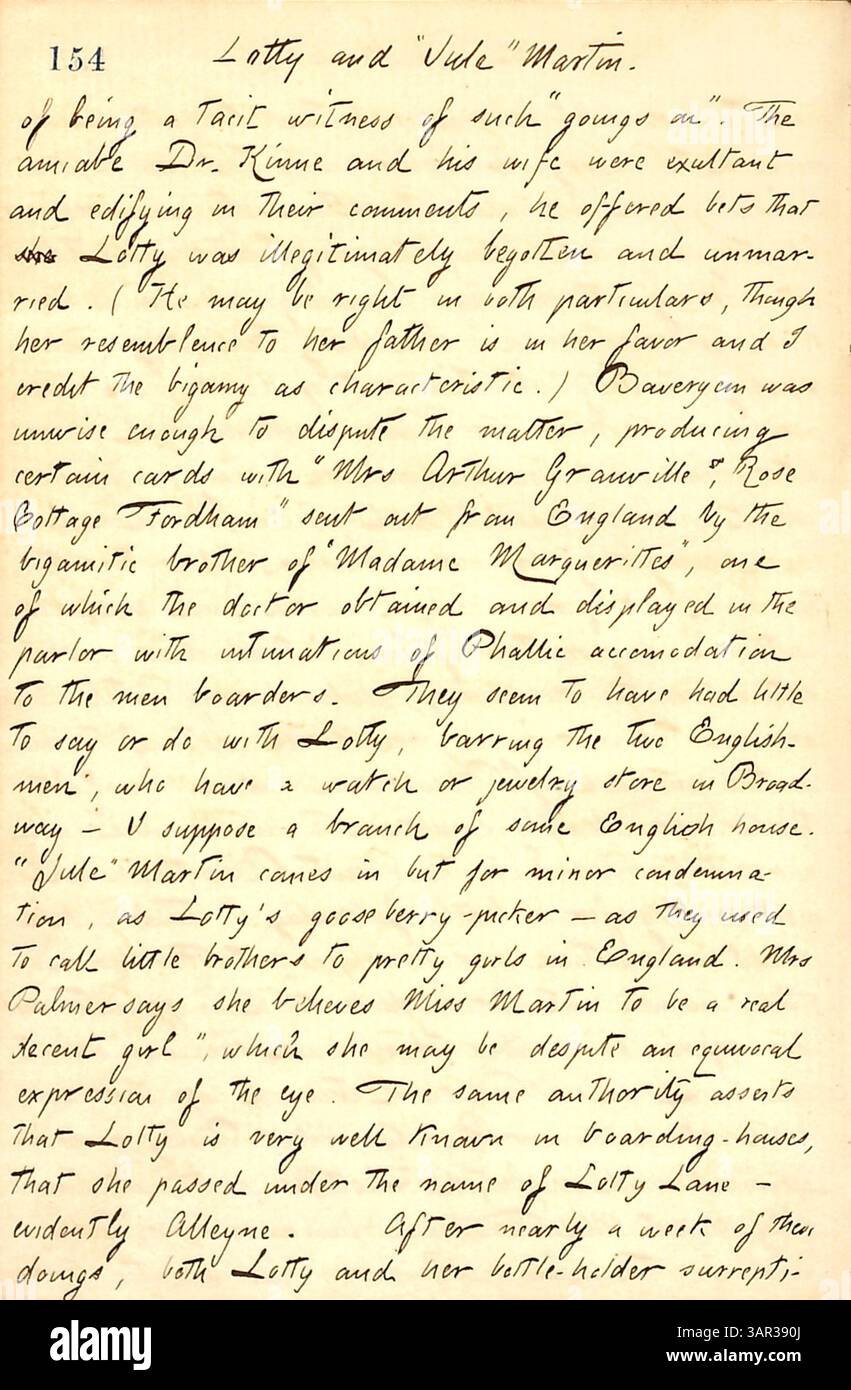 154 Lotty and "Jule" Martin.
of being a tacit witness of such "goings on". The
amiable Dr. Kinne and his wife were exultant
and edifying in their comments, he offered bets that
she Lotty was illegitimately begotten and unmar-
ried. (He may be right in both particulars, though
her resemblence to her father is in her favor and I
credit the bigamy as characteristic.) Baveryem was
unwise enough to dispute the matter, producing
certain cards with "Mrs Arthur Granville", Rose
Cottage Fordham" sent out from England by the
bigamitic brother of "Madame Marguerittes", one
of which the doctor obtained and displayed in the
parlor with intimations of Phallic accomodation
to the men boarders. They seem to have had little
to say or do with Lotty, barring the two English-
men, who have a watch or jewelry store in Broad-
way — I suppose a branch of some English house.
"Jule" Martin comes in but for minor condemna-
tion, as Lotty's gooseberry-picker — as they used
to call little brothers to pretty girls in England. Mrs
Palmer says she believes Miss Martin to be a "real
decent girl", which she may be despite an equivocal
expression of the eye. The same authority asserts
that Lotty is very well known in boarding-houses,
that she passed under the name of Lotty Lane —
evidently Alleyne. After nearly a week of their
doings, both Lotty and her bottle-holder surrepti-
alamy
Image ID: 3AR390J
www.alamy.com